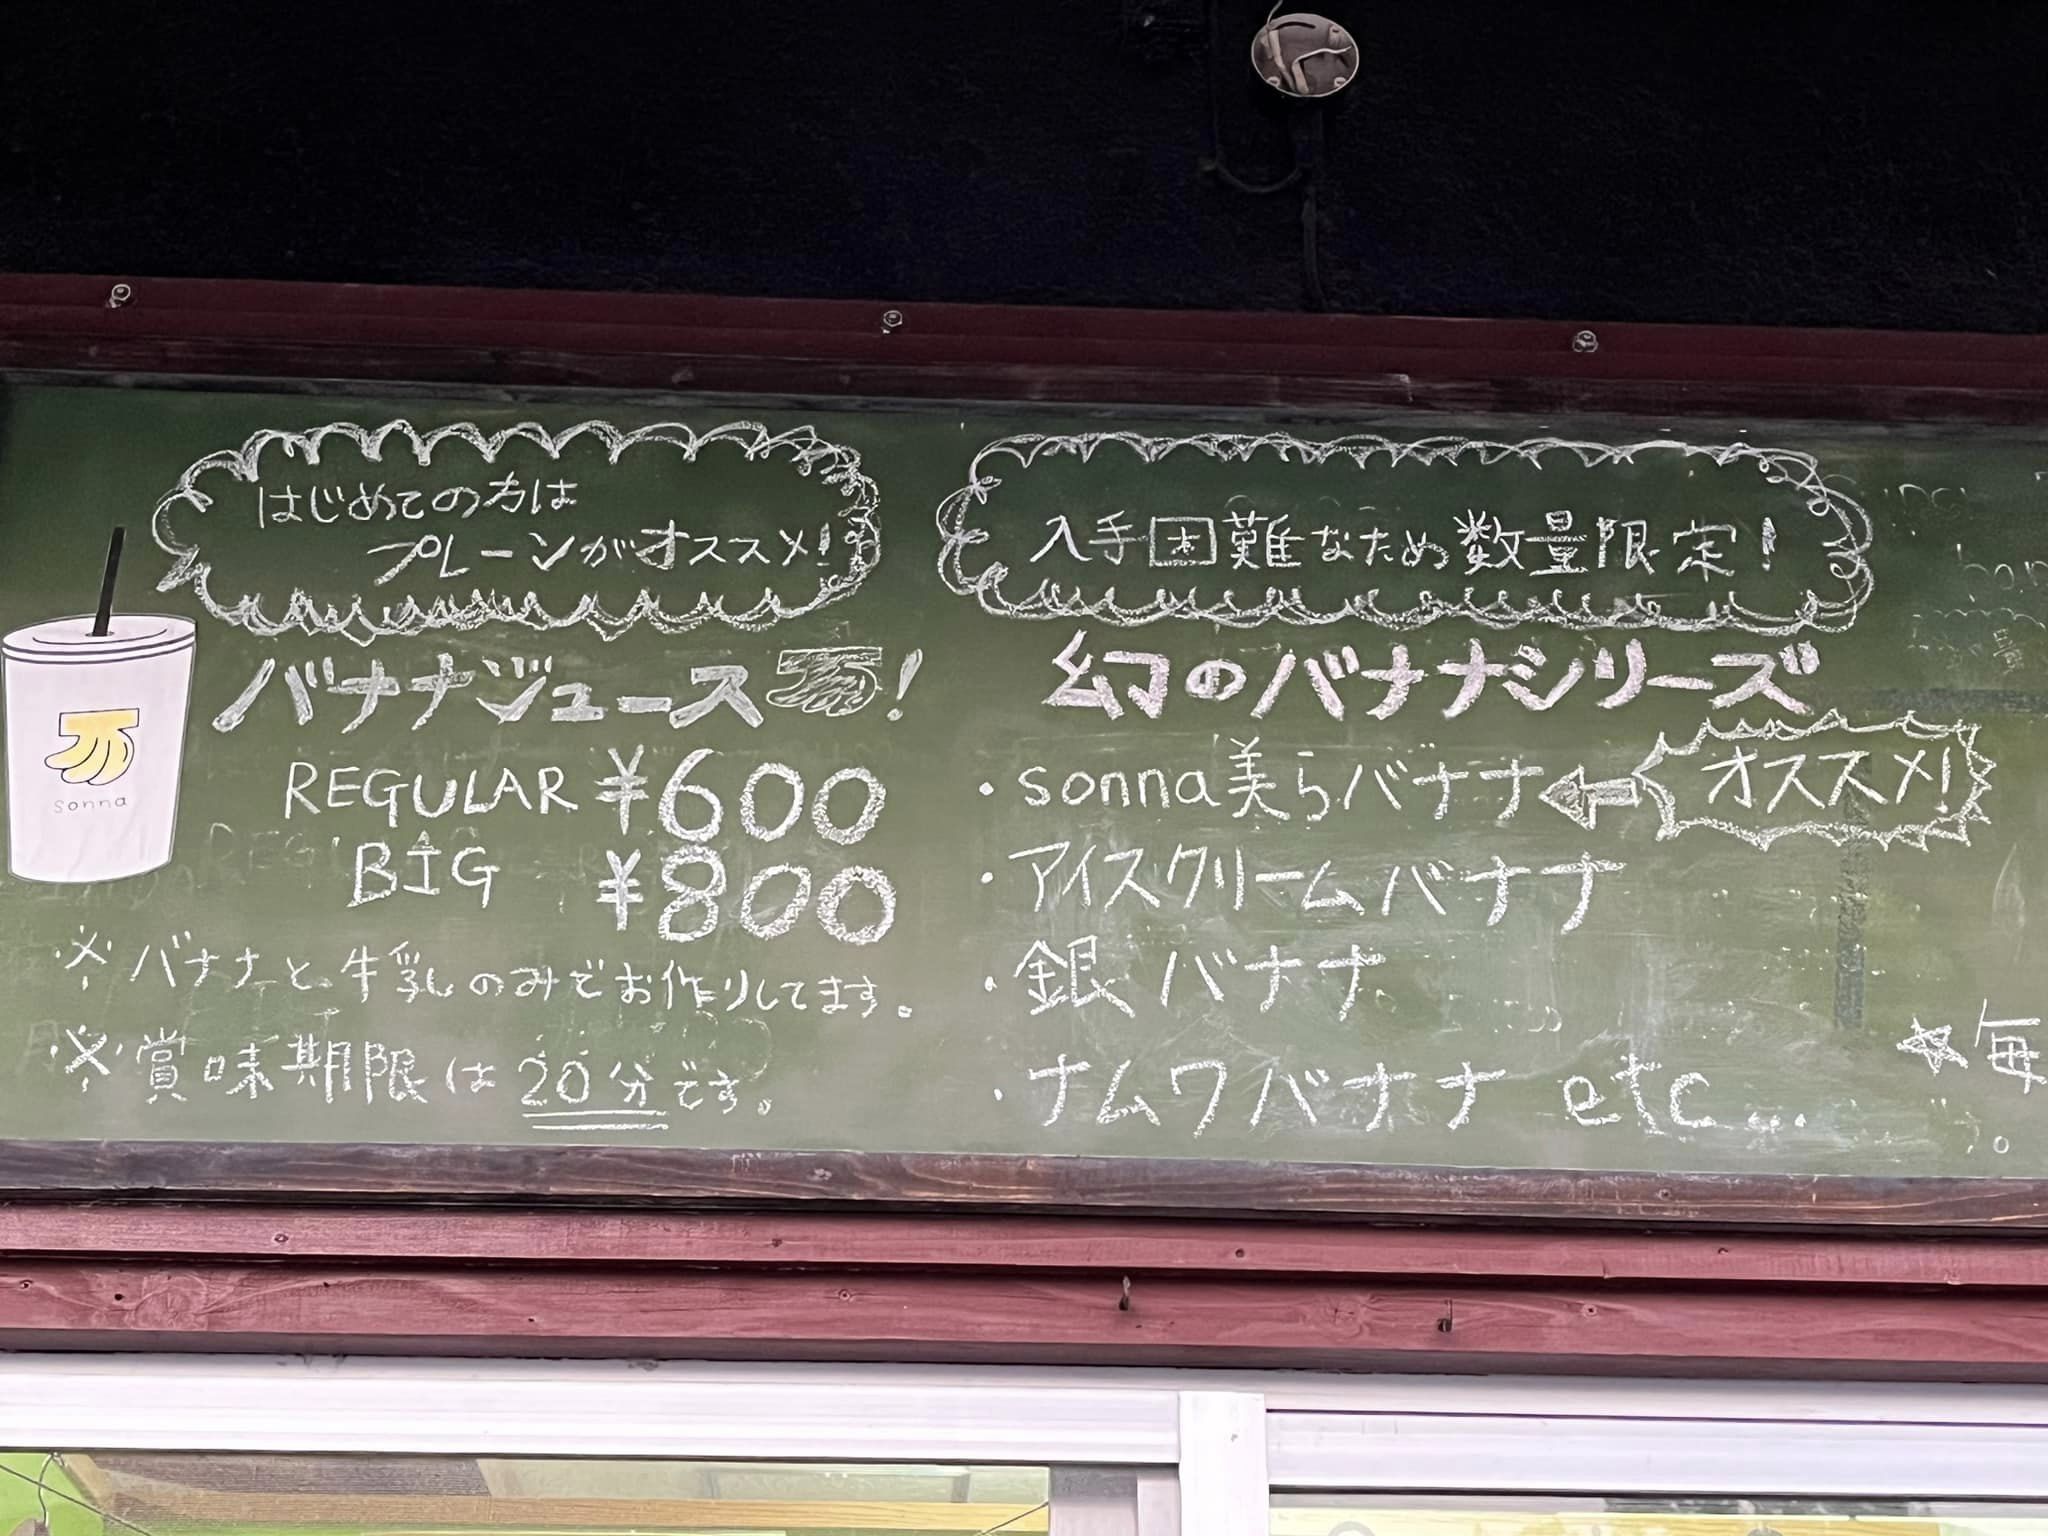 はじめての方は
プレーンがオススメ!
バナナジュース!
REGULAR ¥600
BIG ¥800
※バナナと牛乳のみでお作りしてます。
※賞味期限は20分です。
sonna
入手困難なため数量限定!
幻のバナナシリーズ
・sonna美らバナナ
オススメ!
・アイスクリームバナナ
・銀バナナ
・ナムワバナナ etc...
☆毎